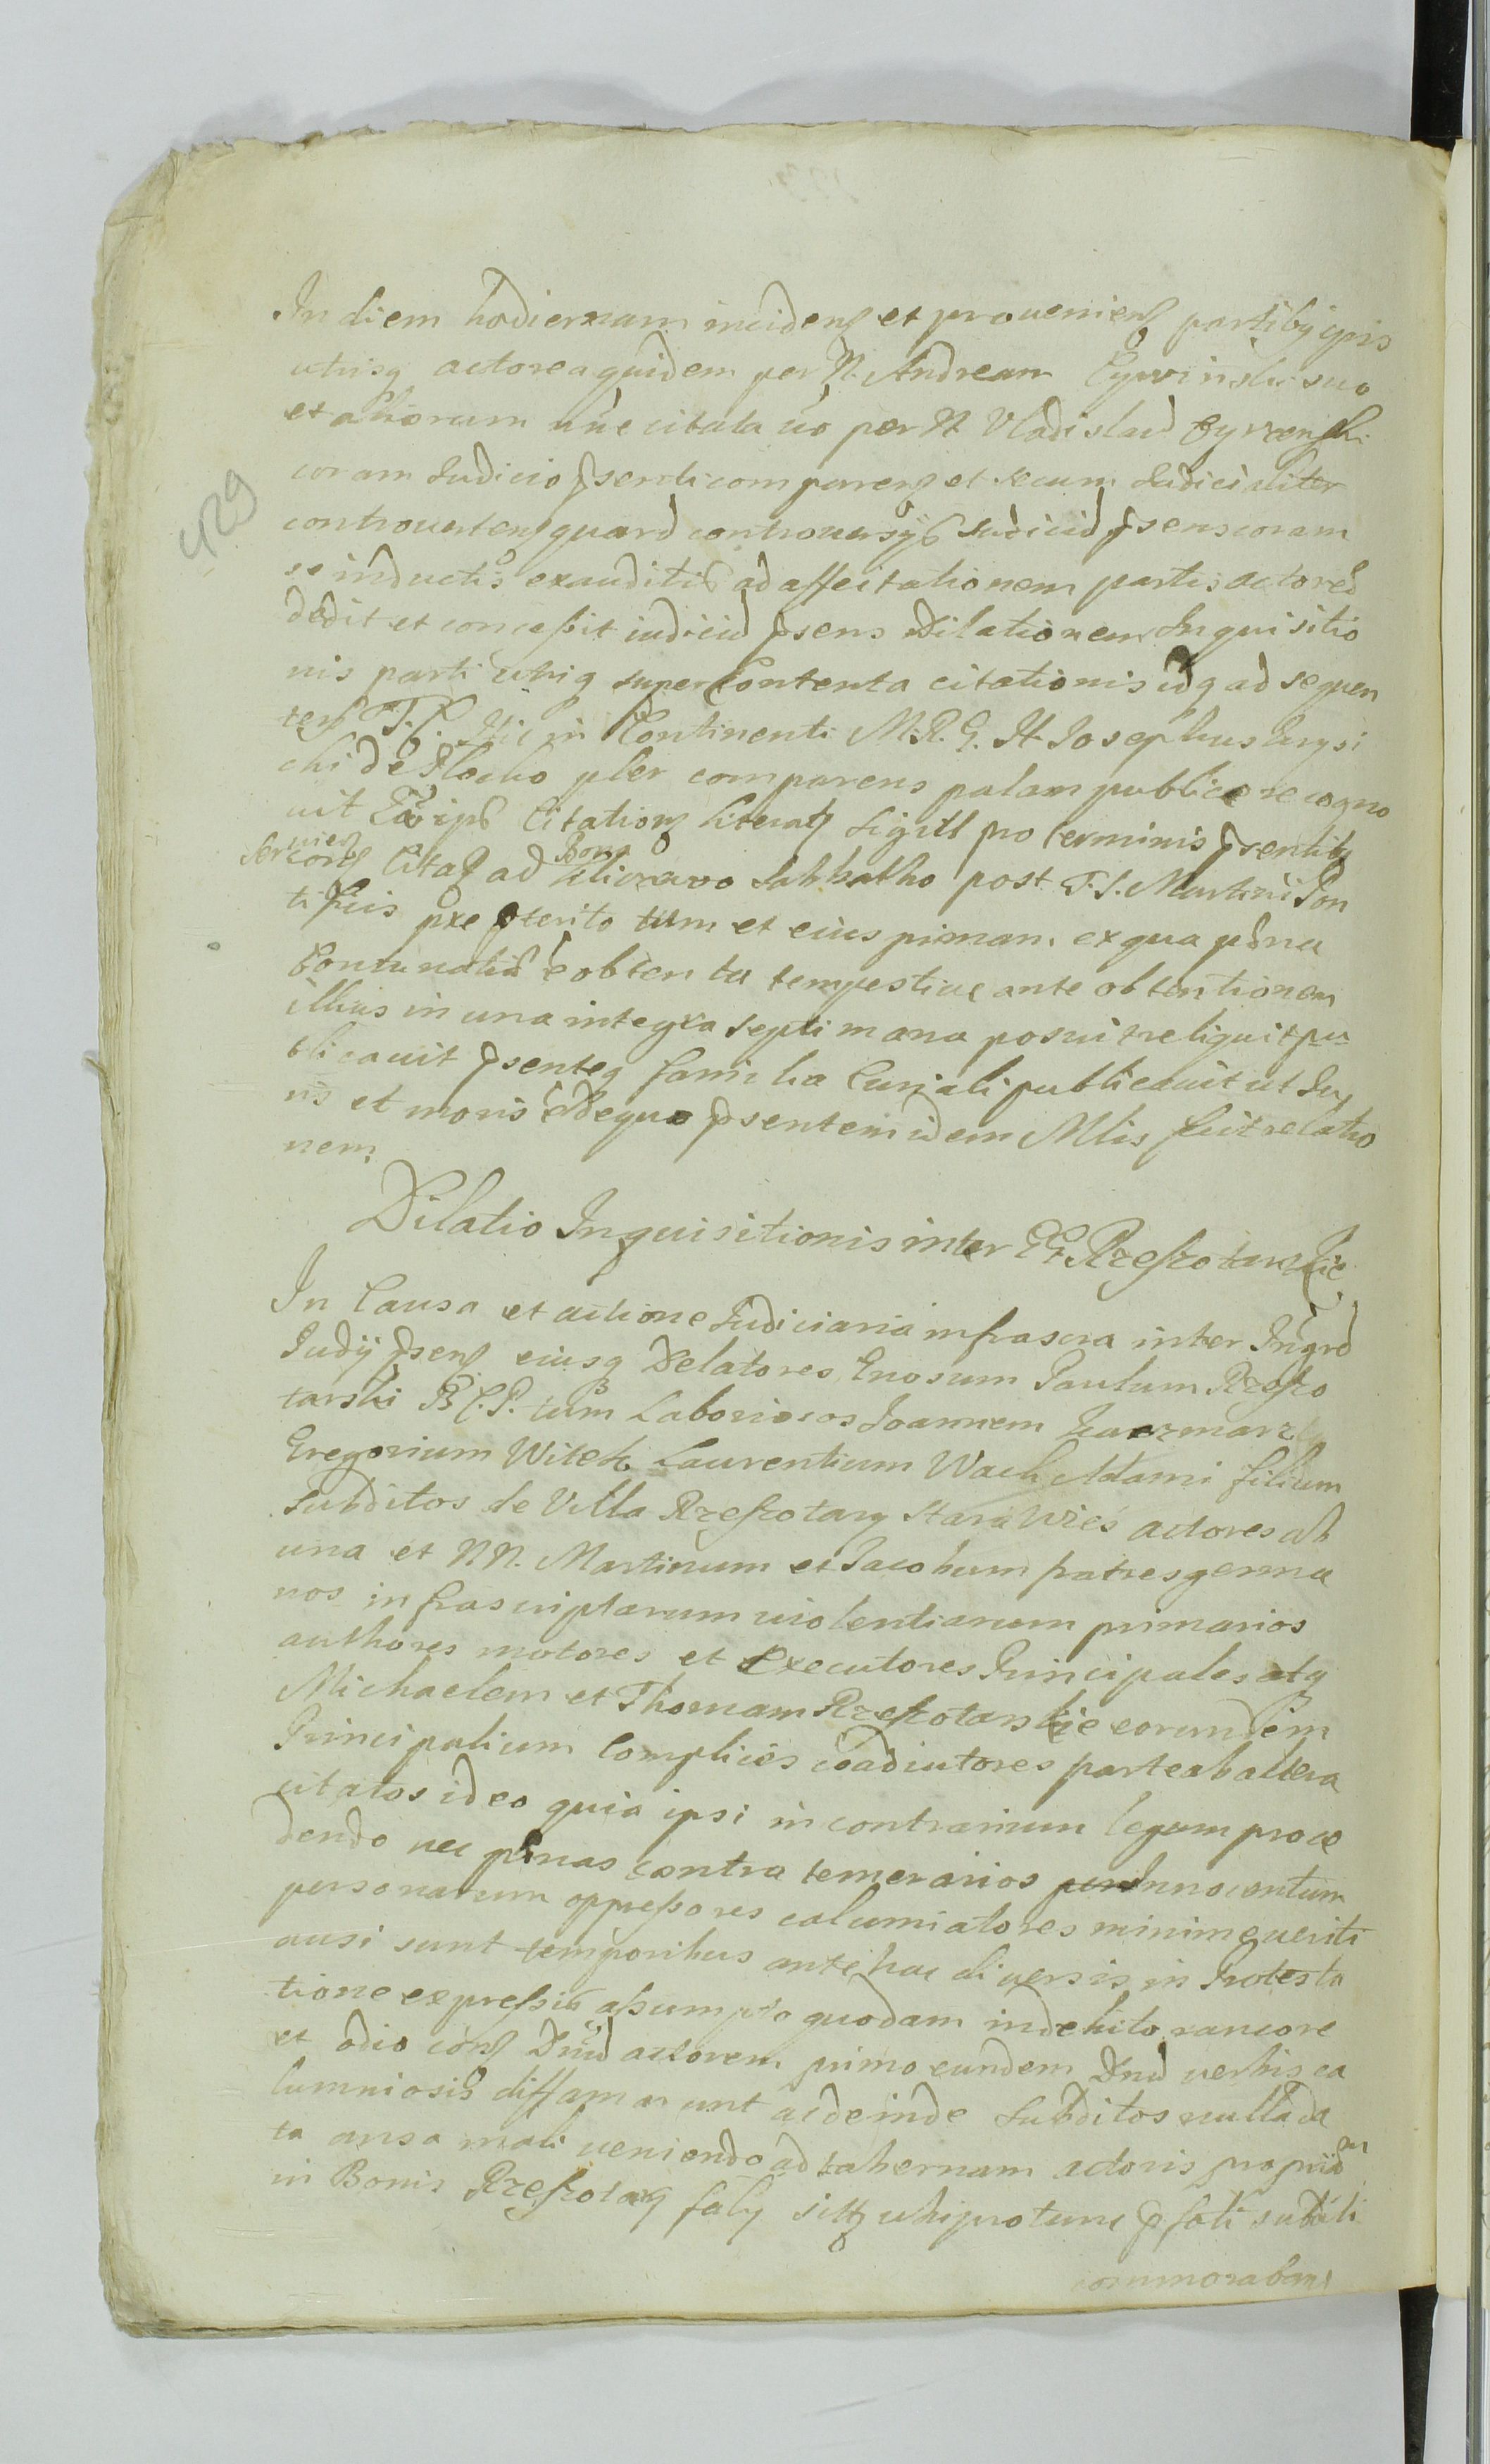 In diem hodiernam inciden et provenien partiby ipis
utrisq actorea quidem per N. Andream Cywinski suo
et aliorum nne citata vo per N Vladislaū Cywinski
coram Judicio psenti comparen et secum Judicialiter
controverten quarū controversijs Judiciū psens coram
se inductis exauditis ad affectationem partis actoreā
dedit et conceßit iudiciū psens Dilationem Inquisitio
nis parti utriq super Contenta citationis idq ad sequen
ten T. P. Hic in Continenti M. R. G. N. Josephus
chi de Plocko pler comparens palam publice recogno
vit ipse Citation literat Sigill pro terminis psentiby
Servien
cor Citat ad Bona Sabbatho post F. S. Martini Pon
tificis preterito tum et eius piman ex qua pdna
obtenta tempestive ante obtentionem
illius in una integra septimana posuit reliquit pu
blicavit psenteq familia Curiali publicavit ut Ju
ris et moris e Dequo psentem idem Mlis fecit relatio
nem
Dilatio Inquisitionis inter GG. Rzeszotarskie
In Causa et actione Judiciaria infrascra inter Ingrd
Judij psens eiusq Delatores Gnosum Paulum Rzeszo
tarski B C. P. tum Laboriosos Joannem Kaczmarz
Gregorium Witek Laurentium Wach Adami filium
Subditos de Villa Rzeszotary Stara Wies actores ab
una et NN. Martinum et Jacobum fratres germa
nos infrascriptarum violentiarum primarios
authores motores et Executores Principales atq
Michaelem et Thomam Rzeszotarskie eorundem
Principalium Complices coadiutores parte ab altera
citatos ideo quia ipsi in contrarium legum proce
dendo nec penas contra temerarios Innocentum
personarum oppreßores calumiatores minime veriti
ausi sunt temporibus antehac diversis in Protesta
tione expreßis aßumpto quodam indebito rancore
et odio con Dnū actorem primo eundem Dnū verbis ca
lumniosis diffamarunt ac deinde Subditos nulla da
ta ansa mali veniendo ad tabernam actoris propriā
in Bonis Rzeszotary sitt ubi pro tunc pfati subditi
commoraban
429